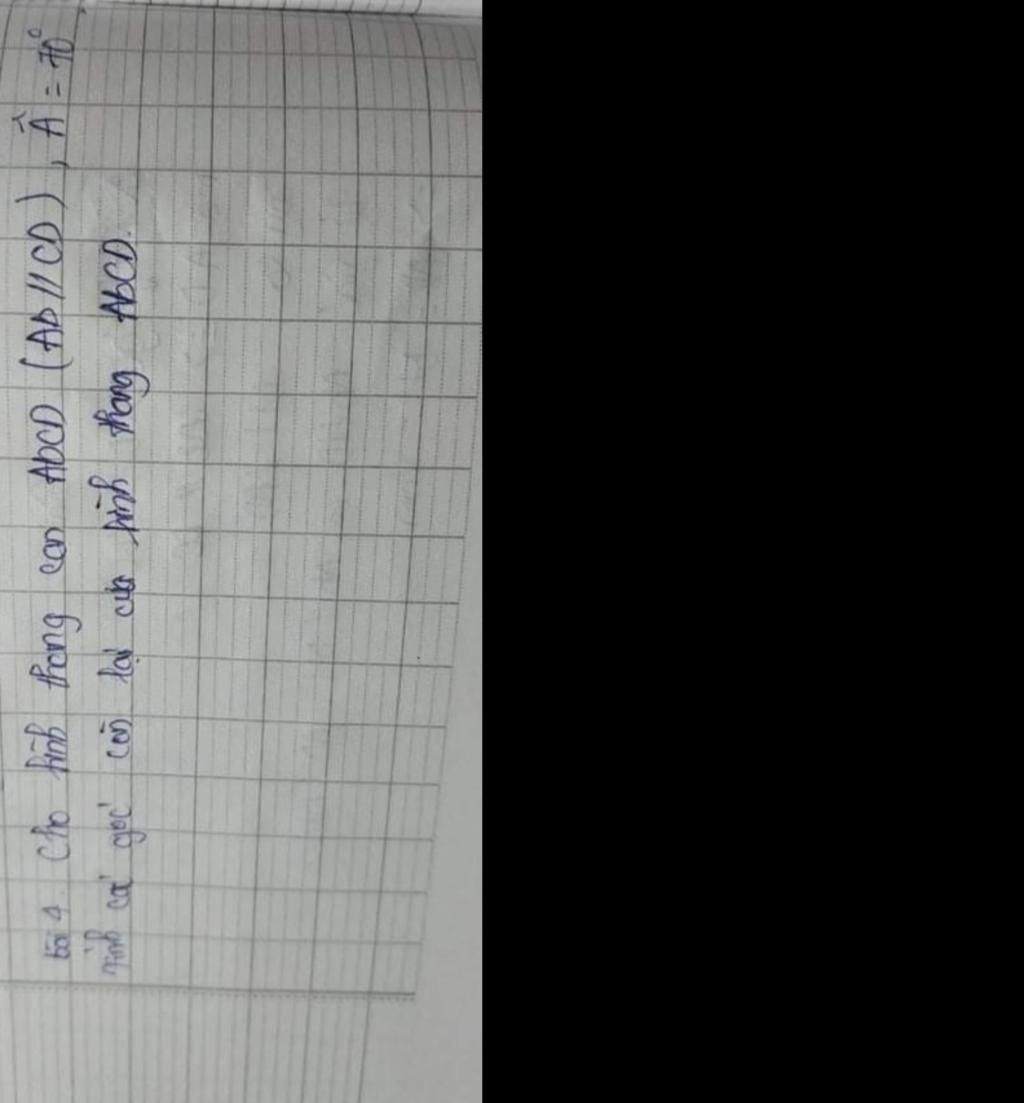 bài 4. Cho hình thang cân AbCD (Ab // CD), Â = 70°
tính các góc còn lại của hình thang AbCD.